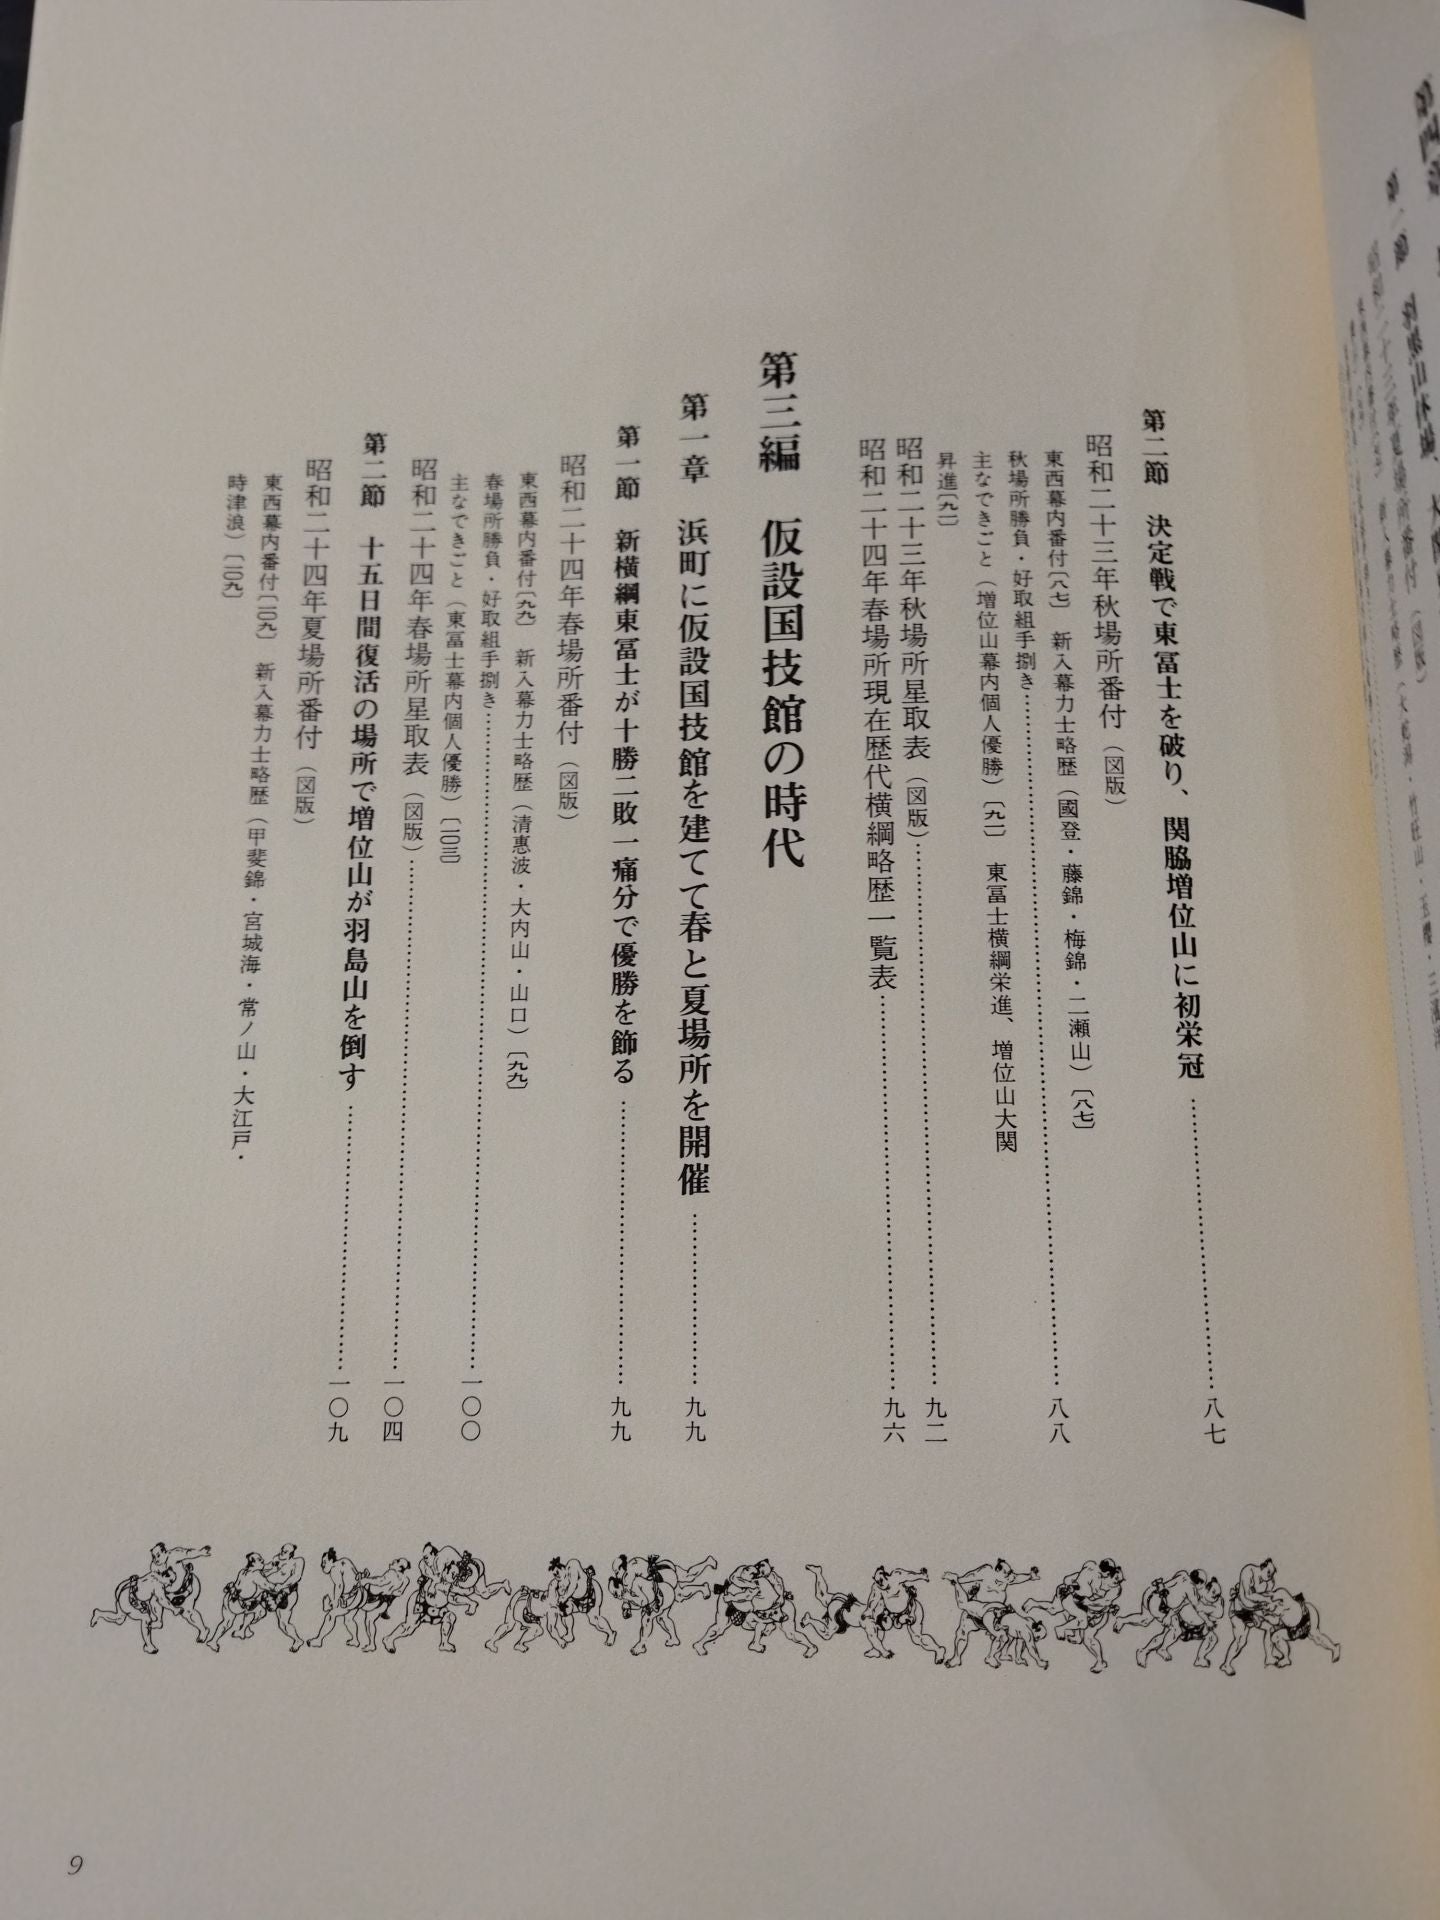 第二節　決定戦で東冨士を破り、関脇増位山に初栄冠……八七
昭和二十三年秋場所番付（図版）
東西幕内番付〔八七〕　新入幕力士略歴（國登・藤錦・梅錦・二瀬山）〔八七〕
秋場所勝負・好取組手捌き……八八
主なできごと（増位山幕内個人優勝）〔九一〕　東冨士横綱栄進、増位山大関
昇進〔九一〕
昭和二十三年秋場所星取表（図版）……九二
昭和二十四年春場所現在歴代横綱略歴一覧表……九六
第三編　仮設国技館の時代
第一章　浜町に仮設国技館を建てて春と夏場所を開催……九九
第一節　新横綱東冨士が十勝二敗一痛分で優勝を飾る……九九
昭和二十四年春場所番付（図版）
東西幕内番付〔九九〕　新入幕力士略歴（清惠波・大内山・山口）〔九九〕
春場所勝負・好取組手捌き……一〇〇
主なできごと（東冨士幕内個人優勝）〔一〇三〕
昭和二十四年春場所星取表（図版）……一〇四
第二節　十五日間復活の場所で増位山が羽島山を倒す……一〇九
昭和二十四年夏場所番付（図版）
東西幕内番付〔一〇九〕　新入幕力士略歴（甲斐錦・宮城海・常ノ山・大江戸・
時津浪）〔一〇九〕
9